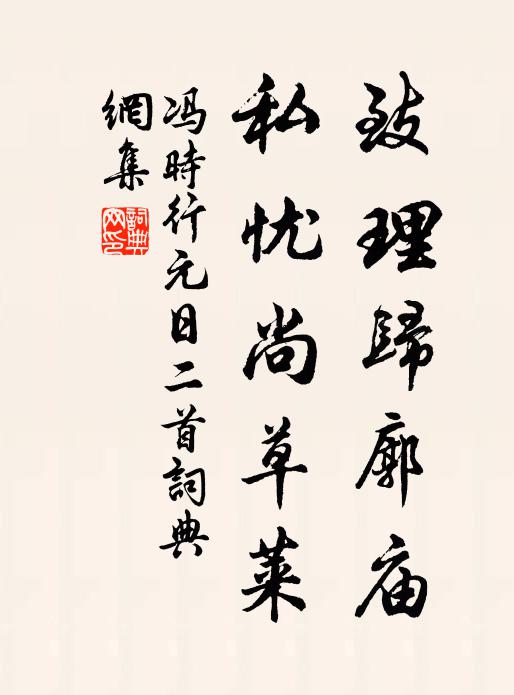 致理歸廊庙
私忧尚草莱
冯時行元日二首詞典
網集
詞典網印